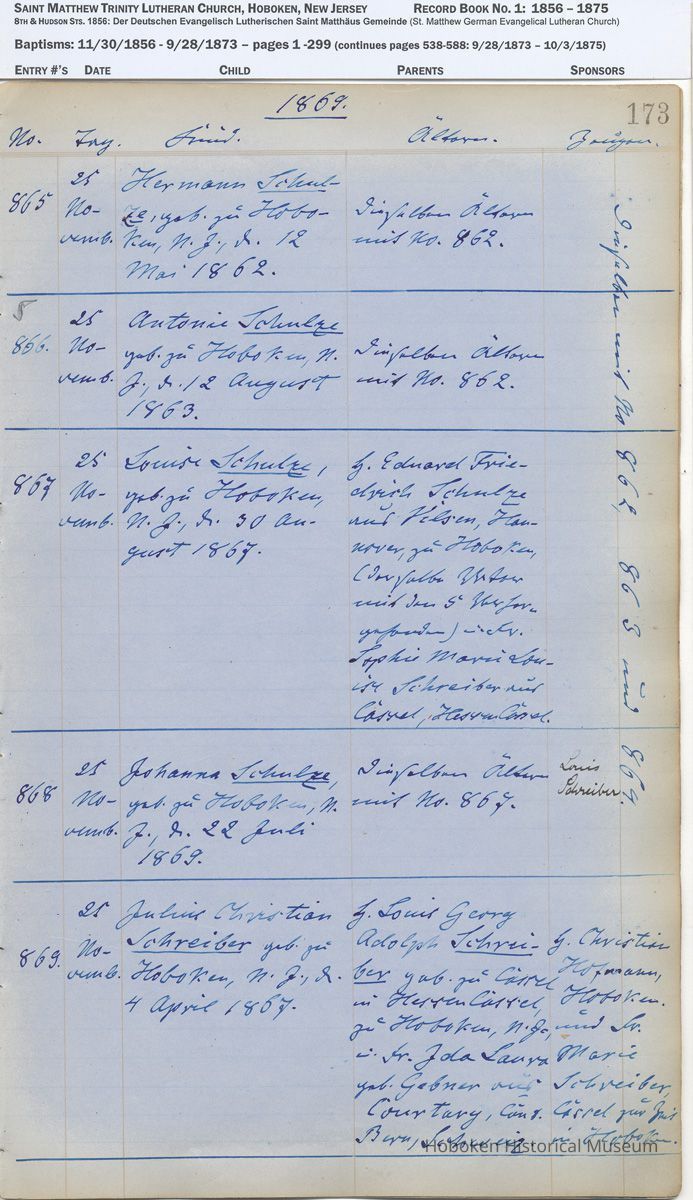 SAINT MATTHEW TRINITY LUTHERAN CHURCH, HOBOKEN, NEW JERSEY RECORD BOOK NO. 1: 1856 – 1875
8TH & HUDSON STS. 1856: Der Deutschen Evangelisch Lutherischen Saint Matthäus Gemeinde (St. Matthew German Evangelical Lutheran Church)
Baptisms: 11/30/1856 - 9/28/1873 – pages 1 -299 (continues pages 538-588: 9/28/1873 – 10/3/1875)
ENTRY #'S DATE CHILD PARENTS SPONSORS
1869.
173
No. Tag. Kind. Ältern. Zeugen.
865
25
No-
vemb.
Hermann Schul-
ze, geb. zu Hobo-
ken, N. J., d. 12
Mai 1862.
Dieselben Ältern
mit No. 862.
Dieselben mit No 862, 863 und 864.
866.
25
No-
vemb.
Antonie Schulze
geb. zu Hoboken, N.
J., d. 12 August
1863.
Dieselben Ältern
mit No. 862.
867
25
No-
vemb.
Louise Schulze,
geb. zu Hoboken,
N. J., d. 30 Au-
gust 1867.
H. Eduard Frie-
drich Schulze
aus Vilsen, Han-
nover, zu Hoboken,
(derselbe Vater
mit den 5 Vorher-
gehenden) u. Fr.
Sophie Marie Lou-
ise Schreiber aus
Cassel, Hessen Cassel.
868
25
No-
vemb.
Johanna Schulze,
geb. zu Hoboken, N.
J., d. 22 Juli
1869.
Dieselben Ältern
mit No. 867.
Louis
Schreiber
869.
25
No-
vemb.
Julius Christian
Schreiber geb. zu
Hoboken, N. J., d.
4 April 1867.
H. Louis Georg
Adolph Schrei-
ber geb. zu Cassel
in Hessen Cassel,
zu Hoboken, N. J.,
u. Fr. Ida Laura
geb. Gebner aus
Courtary, Cant.
Bern, Schweiz
H. Christian
Hofmann,
Hoboken.
und Fr.
Marie
Schreiber,
Cassel zur Zeit
in Hoboken.
Hoboken Historical Museum